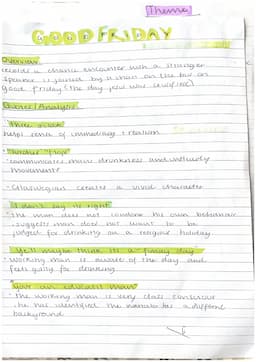 Themes
GOOD FRIDAY
Overview
records a chance encounter with a stranger
speaker is joined by a man on the bus on
good friday (the day jesus was crucified)
Quotes / Analysis
three o'clock
helps sense of immediacy + realism
communicates mans drunkness and unsteady
movements
Glaswegian creates a vivid character
I don't say it's right
The man does not condone his own behaviour
suggests man does not want to be
judged for drinking on a religious holiday
Ye'll maybe think it's a funny day
Working man is aware of the day and
feels guilty for drinking
You're an educatit man
The working man is very class conscious
he has identified the narrator has a different
background